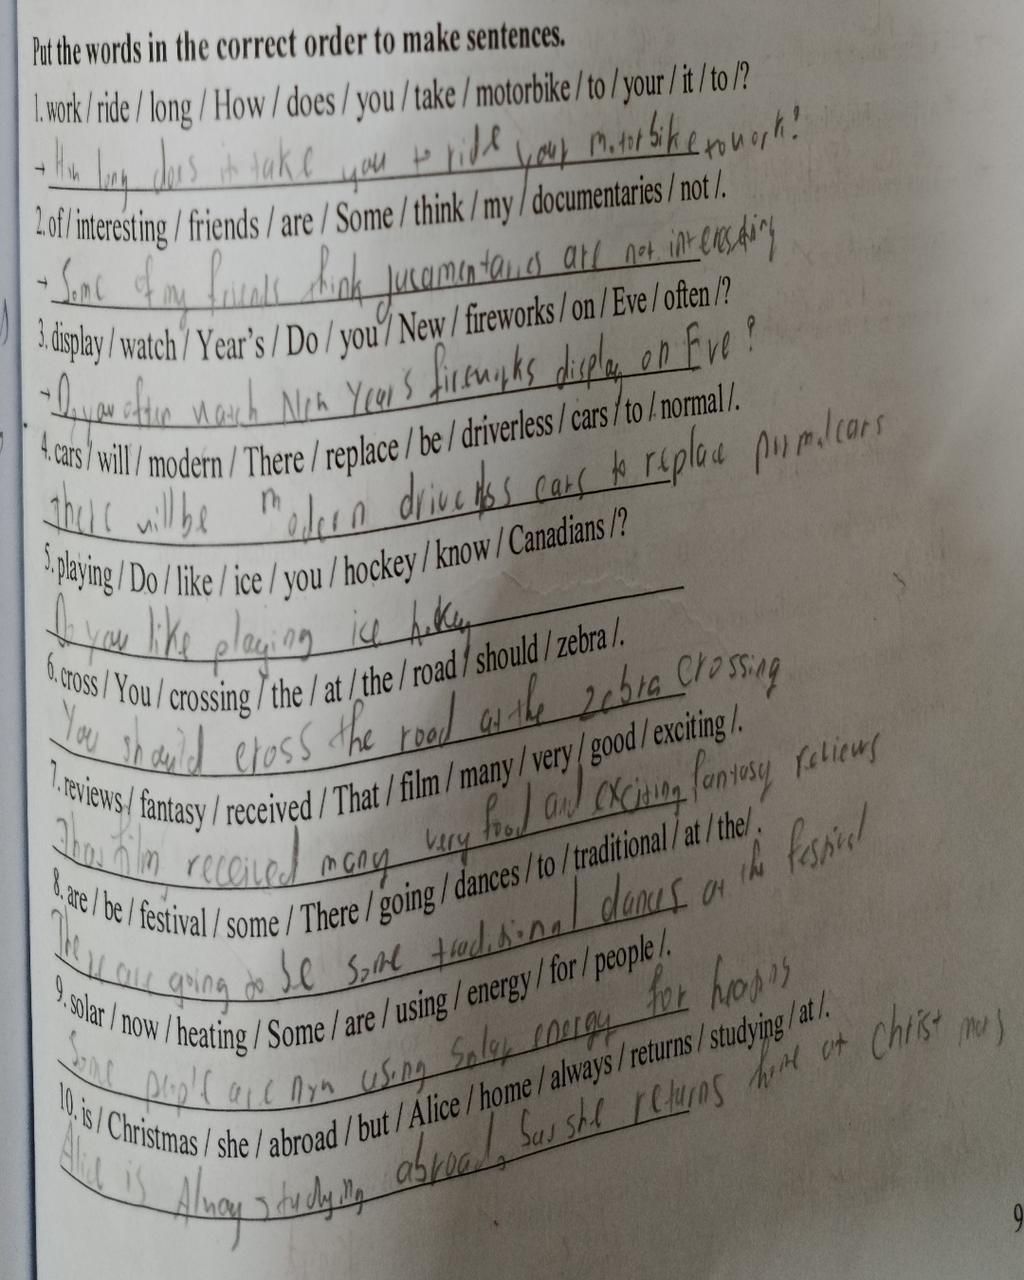 Put the words in the correct order to make sentences.
1. work / ride / long / How / does / you / take / motorbike / to / your / it / to /?
→ How long does it take you to ride your motorbike to work?
2. of / interesting / friends / are / Some / think / my / documentaries / not /.
→ Some of my friends think documentaries are not interesting
3. display / watch / Year's / Do / you / New / fireworks / on / Eve / often /?
→ Do you often watch New Year's fireworks display on Eve?
4. cars / will / modern / There / replace / be / driverless / cars / to / normal /.
There will be modern driverless cars to replace normal cars
5. playing / Do / like / ice / you / hockey / know / Canadians /?
Do you like playing ice hokey
6. cross / You / crossing / the / at / the / road / should / zebra /.
You should cross the road at the zebra crossing
7. reviews / fantasy / received / That / film / many / very / good / exciting /.
That film received many very good and exciting fantasy reviews
8. are / be / festival / some / There / going / dances / to / traditional / at / the/ .
There are going to be some traditional dances at the festival
9. solar / now / heating / Some / are / using / energy / for / people /.
Some people are now using solar energy for
10. is / Christmas / she / abroad / but / Alice / home / always / returns / studying / at /.
Alice is Alway studying abroad, she returns home at Christmas
9